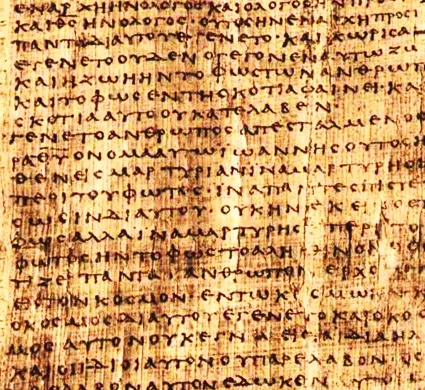 ΕΝΑΡΧΗΗΝΟΛΟΓΟϹΚΑΙΟΛΟΓΟϹ
ΚΑΙΘϹΗΝΟΛΟΓΟϹ ΟΥΤΟϹΗΝΕΝΑΡΧΗΠΡΟϹ
ΠΑΝΤΑΔΙΑΥΤΟΥΕΓΕΝΕΤΟ ΚΑΙΧΩΡΙϹΑ
ΕΓΕΝΕΤΟΟΥΔΕΝΟΓΕΓΟΝΕΝΑΥΤΩΖΩ
ΚΑΙΗΖΩΗΗΝΤΟΦΩϹΤΩΝΑΝΘΡΩΠ
ΚΑΙΤΟΦΩϹΕΝΤΗϹΚΟΤΙΑΦΑΙΝΕΙΚΑ
ϹΚΟΤΙΑΑΥΤΟΟΥΚΑΤΕΛΑΒΕΝ
ΓΕΝΕΤΟΑΝΘΡΩΠΟϹΑΠΕϹΤΑΛΜΕΝΟϹ
ΡΑΘΥΟΝΟΜΑΑΥΤΩΙΩΑΝΝΗϹΟΥΤΟϹΗ
ΘΕΝΕΙϹΜΑΡΤΥΡΙΑΝΙΝΑΜΑΡΤΥΡΗϹΗ
ΠΕΡΙΤΟΥΦΩΤΟϹΙΝΑΠΑΝΤΕϹΠΙϹΤΕΥ
ϹΩϹΙΝΔΙΑΥΤΟΥ ΟΥΚΗΝΕΚΕΙΝΟϹΤΟ
ΦΩϹΑΛΛΑΙΝΑΜΑΡΤΥΡΗϹΗΠΕΡΙΤΟΥ
ΦΩΤΟϹΗΝΤΟΦΩϹΤΟΑΛΗΘΙΝΟΝΟΦΩ
ΤΙΖΕΙΠΑΝΤΑΑΝΘΡΩΠΟΝΕΡΧΟ
ΕΙϹΤΟΝΚΟϹΜΟΝ ΕΝΤΩΚΟϹΜΩ
ΟΚΟϹΜΟϹΔΙΑΥΤΟΥΕΓΕΝΕΤΟΚΑΙΟΚΟϹ
ΜΟϹΑΥΤΟΝΟΥΚΕΓΝΩ ΕΙϹΤΑΙΔΙΑΗΛ
ΚΑΙΟΙΙΔΙΟΙΑΥΤΟΝΟΥΠΑΡΕΛΑΒΟΝ ΟϹ
ΛΑΒΟΝΑΥΤΟΝΕΔΩΚΕΝ